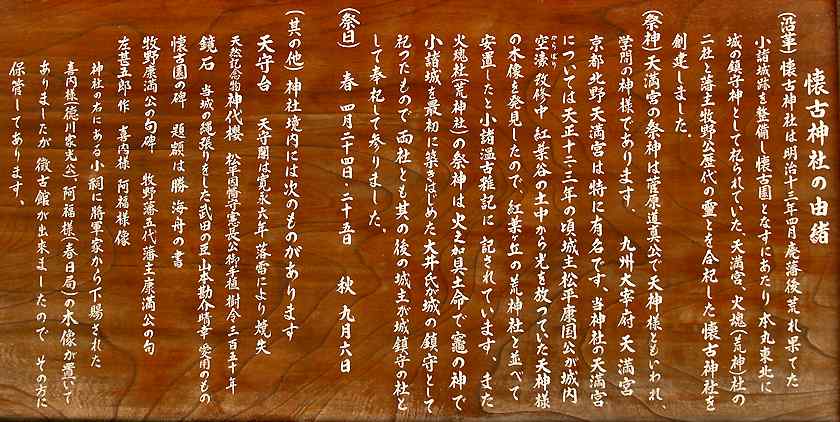 懐古神社の由緒
(沿革)懐古神社は明治十三年四月廃藩後荒れ果てた
小諸城跡を整備し懐古園となすにあたり本丸東北に
城の鎮守神として祀られていた天満宮、火魂(荒神)社の
二社と藩主牧野公歴代の霊とを合祀した懐古神社を
創建しました。
(祭神)天満宮の祭神は菅原道真公で天神様ともいわれ、
学問の神様であります。九州大宰府天満宮
京都北野天満宮は特に有名です、当神社の天満宮
については天正十二・三年の頃城主松平康国公が城内
空濠(からぼり)改修中紅葉谷の土中から光を放っていた天神様
の木像を発見したので、紅葉ヶ丘の荒神社と並べて
安置したと小諸温古雑記に記されています また
火魂社(荒神社)の祭神は火之加具土命で竈の神で
小諸城を最初に築きはじめた大井氏が城の鎮守として
祀ったもので両社とも其の後の城主が城鎮守の社と
して奉祀して参りました。
(祭日) 春 四月二十四日・二十五日 秋 九月六日
(其の他)神社境内には次のものがあります
天守台 天守閣は寛永六年落雷により焼失
天然記念物 神代桜 松平因幡守憲良公御手植 樹令三百五十年
鏡石 当城の縄張りをした武田の臣山本勘介晴幸愛用のもの
懐古園の碑 題額は勝海舟の書
牧野康満公の句碑 牧野藩五代藩主康満公の句
左甚五郎作 喜内様 阿福様像
神社の右にある小祠に将軍家から下賜された
喜内様(徳川家光公)、阿福様(春日局)の木像が置いて
ありましたが徴古館が出来ましたので その方に
保管してあります、